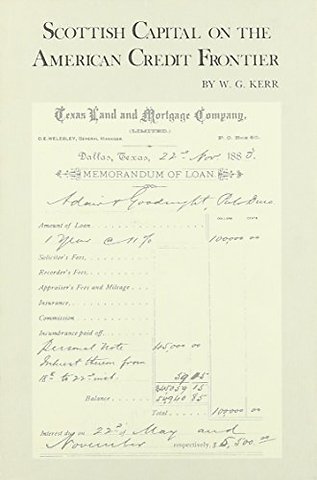 SCOTTISH CAPITAL ON THE
AMERICAN CREDIT FRONTIER
BY W. G. KERR
Texas Land and Mortgage Company,
(LIMITED.)
C.E. WELLESLEY, GENERAL MANAGER. P. O. BOX 60.
Dallas, Texas, 22nd Nov 188
MEMORANDUM OF LOAN
Adair & Goodnight, Palo Duro
DOLLARS CENTS
Amount of Loan
1 Year @ 11% 100000 00
Solicitor's Fees,
Recorder's Fees,
Appraiser's Fees and Mileage
Insurance,
Commission
Incumbrance paid off,
Personal Note 45000 00
Interest thereon from
18th to 22nd inst. 59 15
45059 15
Balance 54940 85
Total 100000 00
Interest due on 22nd of May and
November respectively, $5,500.00